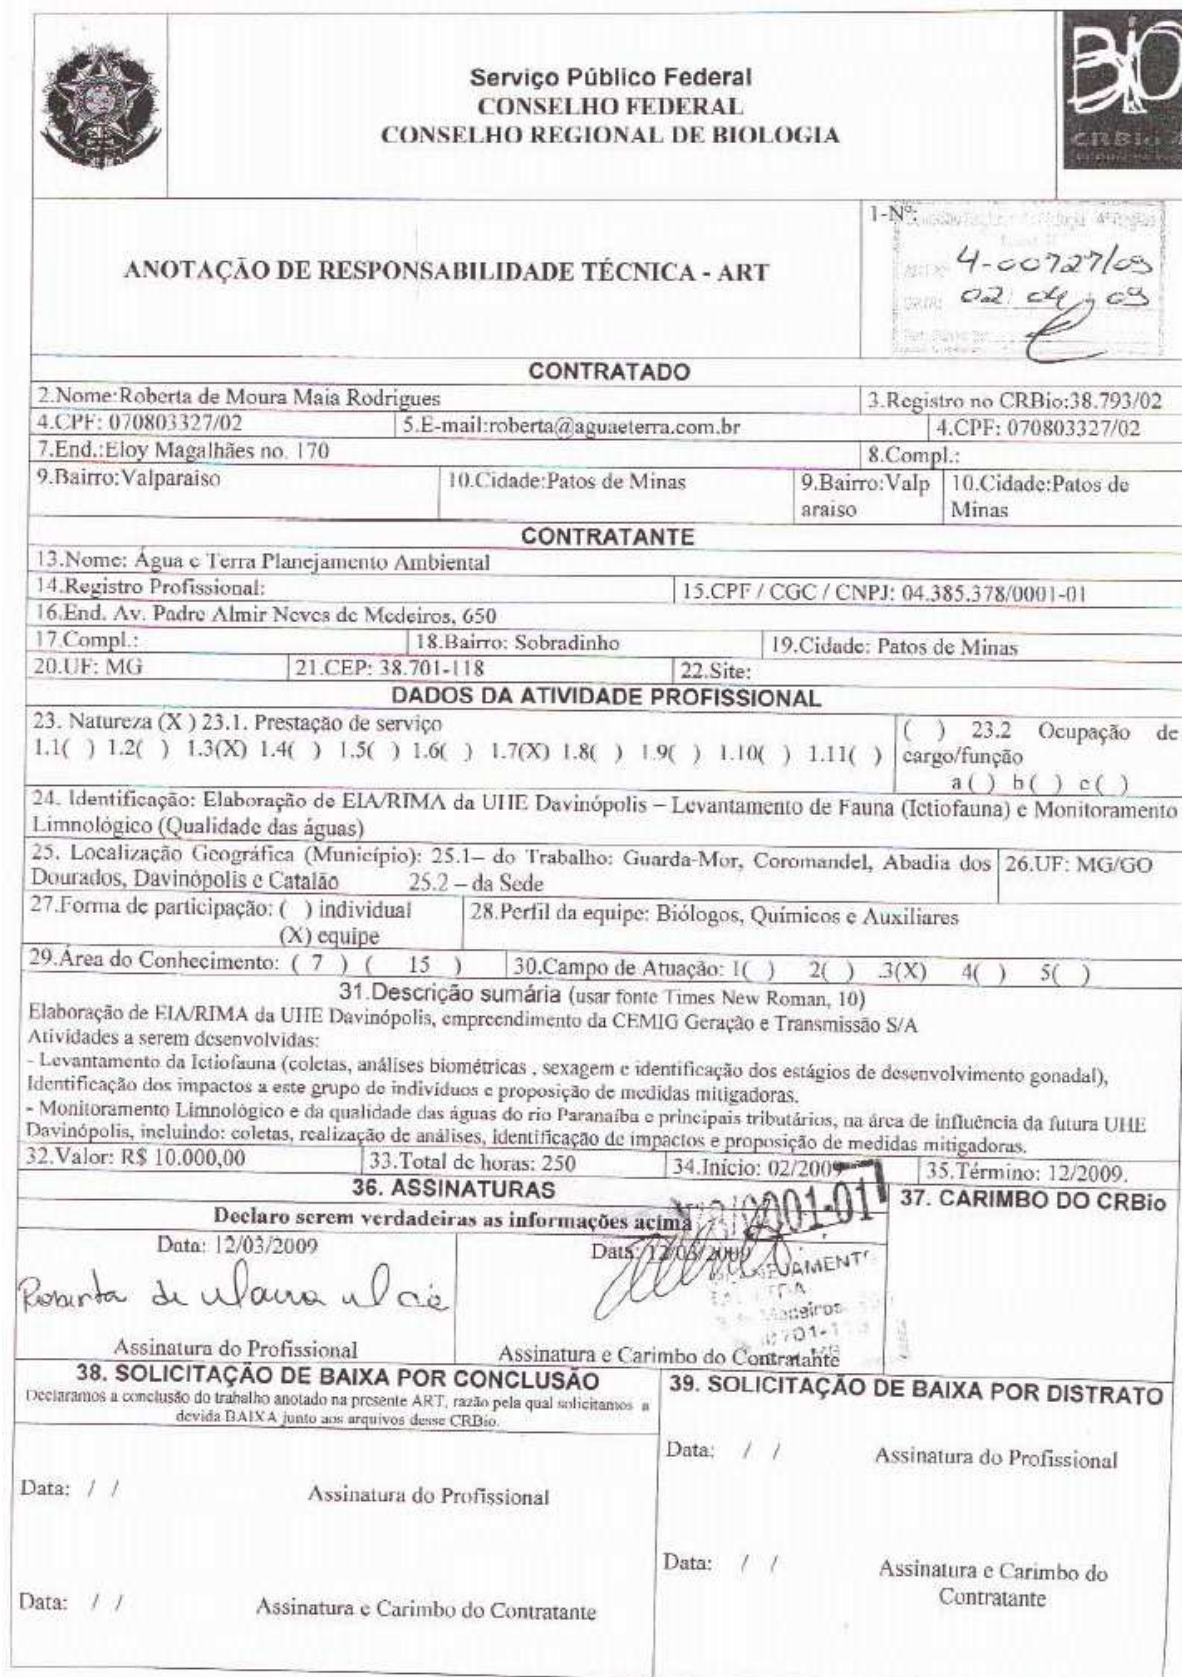 Serviço Público Federal
CONSELHO FEDERAL
CONSELHO REGIONAL DE BIOLOGIA
BIO
CRBio
ANOTAÇÃO DE RESPONSABILIDADE TÉCNICA - ART
1-Nº:
4-00727/09
02 04 09
CONTRATADO
2.Nome:Roberta de Moura Maia Rodrigues 3.Registro no CRBio:38.793/02
4.CPF: 070803327/02 5.E-mail:roberta@aguaeterra.com.br 4.CPF: 070803327/02
7.End.:Eloy Magalhães no. 170 8.Compl.:
9.Bairro:Valparaiso 10.Cidade:Patos de Minas 9.Bairro:Valp 10.Cidade:Patos de
araiso Minas
CONTRATANTE
13.Nome: Água e Terra Planejamento Ambiental
14.Registro Profissional: 15.CPF / CGC / CNPJ: 04.385.378/0001-01
16.End. Av. Padre Almir Neves de Medeiros, 650
17.Compl.: 18.Bairro: Sobradinho 19.Cidade: Patos de Minas
20.UF: MG 21.CEP: 38.701-118 22.Site:
DADOS DA ATIVIDADE PROFISSIONAL
23. Natureza (X ) 23.1. Prestação de serviço ( ) 23.2 Ocupação de
1.1( ) 1.2( ) 1.3(X) 1.4( ) 1.5( ) 1.6( ) 1.7(X) 1.8( ) 1.9( ) 1.10( ) 1.11( ) cargo/função
a ( ) b ( ) c ( )
24. Identificação: Elaboração de EIA/RIMA da UHE Davinópolis – Levantamento de Fauna (Ictiofauna) e Monitoramento
Limnológico (Qualidade das águas)
25. Localização Geográfica (Município): 25.1– do Trabalho: Guarda-Mor, Coromandel, Abadia dos 26.UF: MG/GO
Dourados, Davinópolis e Catalão 25.2 – da Sede
27.Forma de participação: ( ) individual 28.Perfil da equipe: Biólogos, Químicos e Auxiliares
(X) equipe
29.Área do Conhecimento: ( 7 ) ( 15 ) 30.Campo de Atuação: 1( ) 2( ) .3(X) 4( ) 5( )
31.Descrição sumária (usar fonte Times New Roman, 10)
Elaboração de EIA/RIMA da UHE Davinópolis, empreendimento da CEMIG Geração e Transmissão S/A
Atividades a serem desenvolvidas:
- Levantamento da Ictiofauna (coletas, análises biométricas , sexagem e identificação dos estágios de desenvolvimento gonadal),
Identificação dos impactos a este grupo de indivíduos e proposição de medidas mitigadoras.
- Monitoramento Limnológico e da qualidade das águas do rio Paranaíba e principais tributários, na área de influência da futura UHE
Davinópolis, incluindo: coletas, realização de análises, identificação de impactos e proposição de medidas mitigadoras.
32.Valor: R$ 10.000,00 33.Total de horas: 250 34.Início: 02/2009 35.Término: 12/2009.
36. ASSINATURAS 37. CARIMBO DO CRBio
Declaro serem verdadeiras as informações acima
Data: 12/03/2009 Data: 12/03/2009
Roberta de Moura Maia
Assinatura do Profissional Assinatura e Carimbo do Contratante
38. SOLICITAÇÃO DE BAIXA POR CONCLUSÃO
Declaramos a conclusão do trabalho anotado na presente ART, razão pela qual solicitamos a
devida BAIXA junto aos arquivos desse CRBio.
Data: / / Assinatura do Profissional
Data: / / Assinatura e Carimbo do Contratante
39. SOLICITAÇÃO DE BAIXA POR DISTRATO
Data: / / Assinatura do Profissional
Data: / / Assinatura e Carimbo do
Contratante